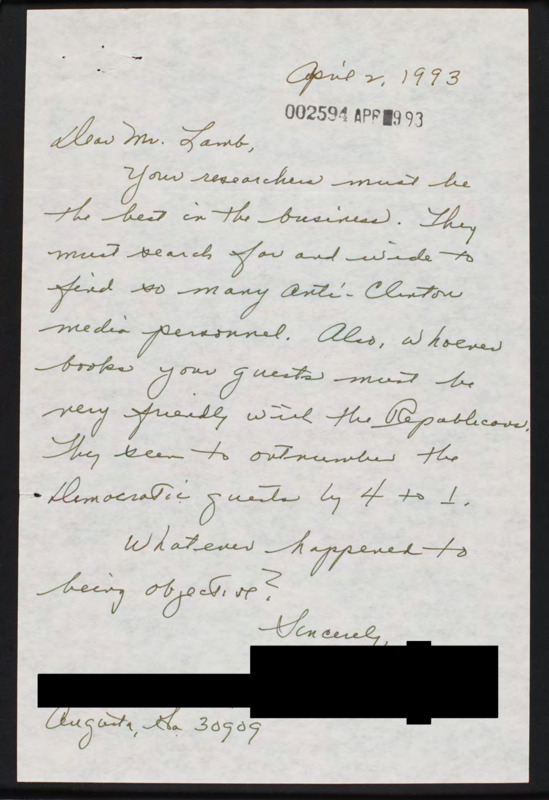 April 2, 1993
002594 APR 993
Dear Mr. Lamb,
Your researchers must be
the best in the business. They
must search far and wide to
find so many anti-Clinton
media personnel. Also, whoever
books your guests must be
very friendly with the Republicans.
They seem to outnumber the
Democratic guests by 4 to 1.
Whatever happened to
being objective?
Sincerely,
Augusta, Ga. 30909